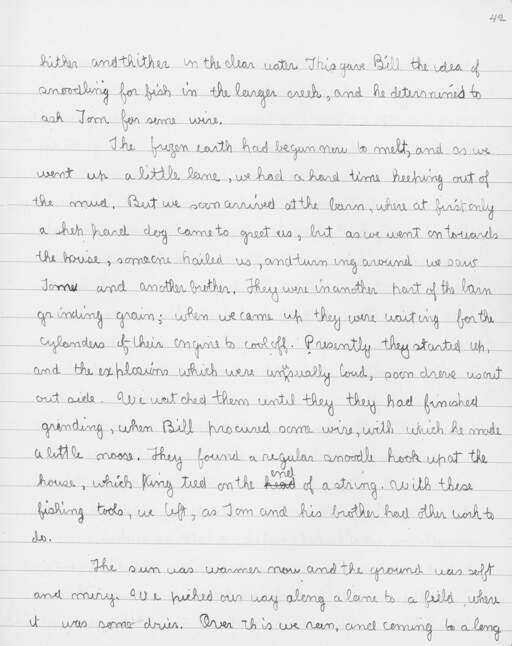 42
hither and thither in the clear water. This gave Bill the idea of
snoodling for fish in the larger creek, and he determined to
ask Tom for some wire.
The frozen earth had begun now to melt, and as we
went up a little lane, we had a hard time keeping out of
the mud. But we soon arrived at the barn, where at first only
a shep hard dog came to greet us, but as we went on towards
the house, someone hailed us, and turning around we saw
Tom and another brother. They were in another part of the barn
grinding grain; when we came up they were waiting for the
cylanders of their engine to cool off. Presently they started up,
and the explosions which were unusually loud, soon drove us out
out side. We watched them until they they had finished
grinding, when Bill procured some wire, with which he made
a little noose. They found a regular snoodle hook up at the
house, which King tied on the end of a string. With these
fishing tools, we left, as Tom and his brother had other work to
do.
The sun was warmer now and the ground was soft
and miry. We picked our way along a lane to a field, where
it was some drier. Over this we ran, and coming to a long